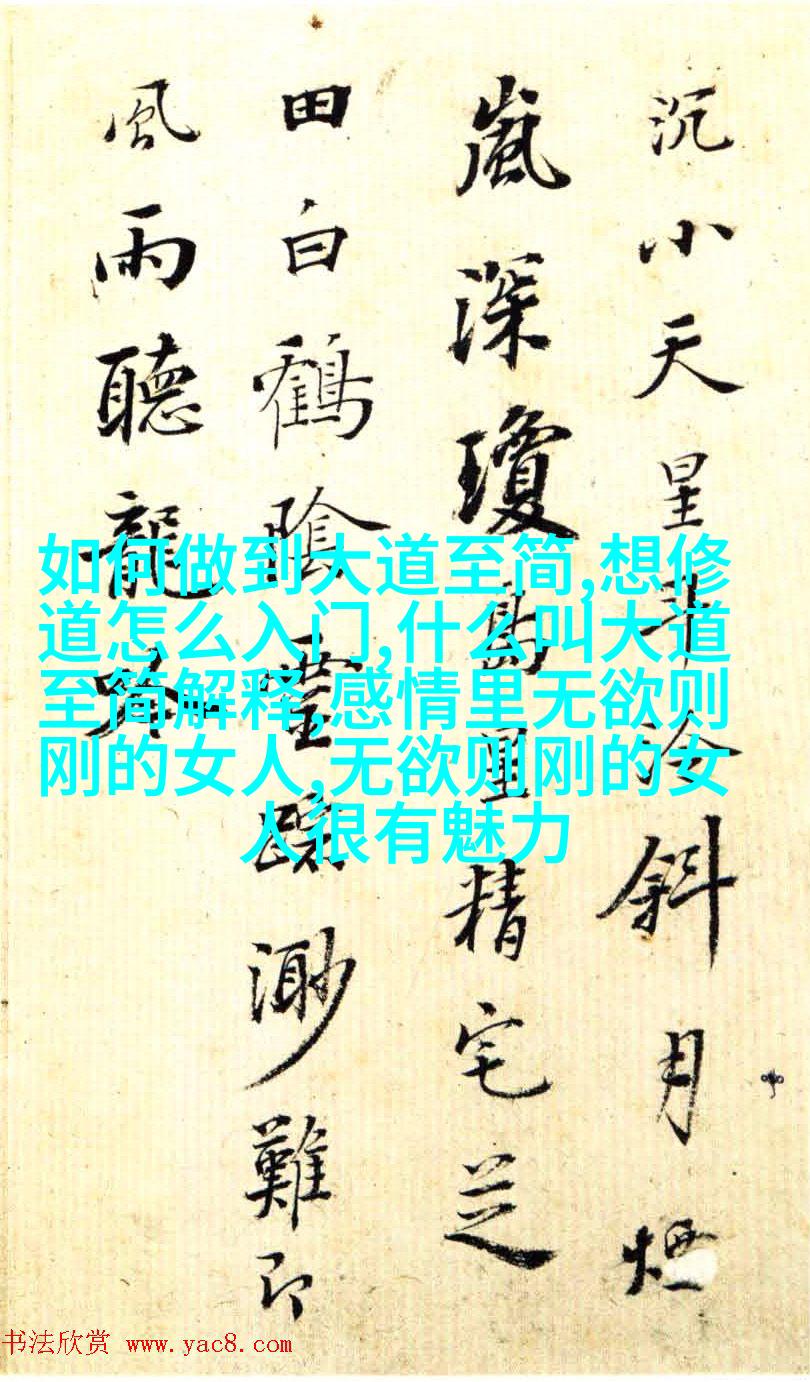 沉小天星斗冷斜月煙
嵐深瓊島星精宅芝
田白鶴陰靈蹤渺難即
風雨聽龍吟
如何做到大道至简,想修
道怎么入门,什么叫大道
至简解释,感情里无欲则
刚的女人,无欲则刚的女
人很有魅力
书法欣赏 www.yac8.com